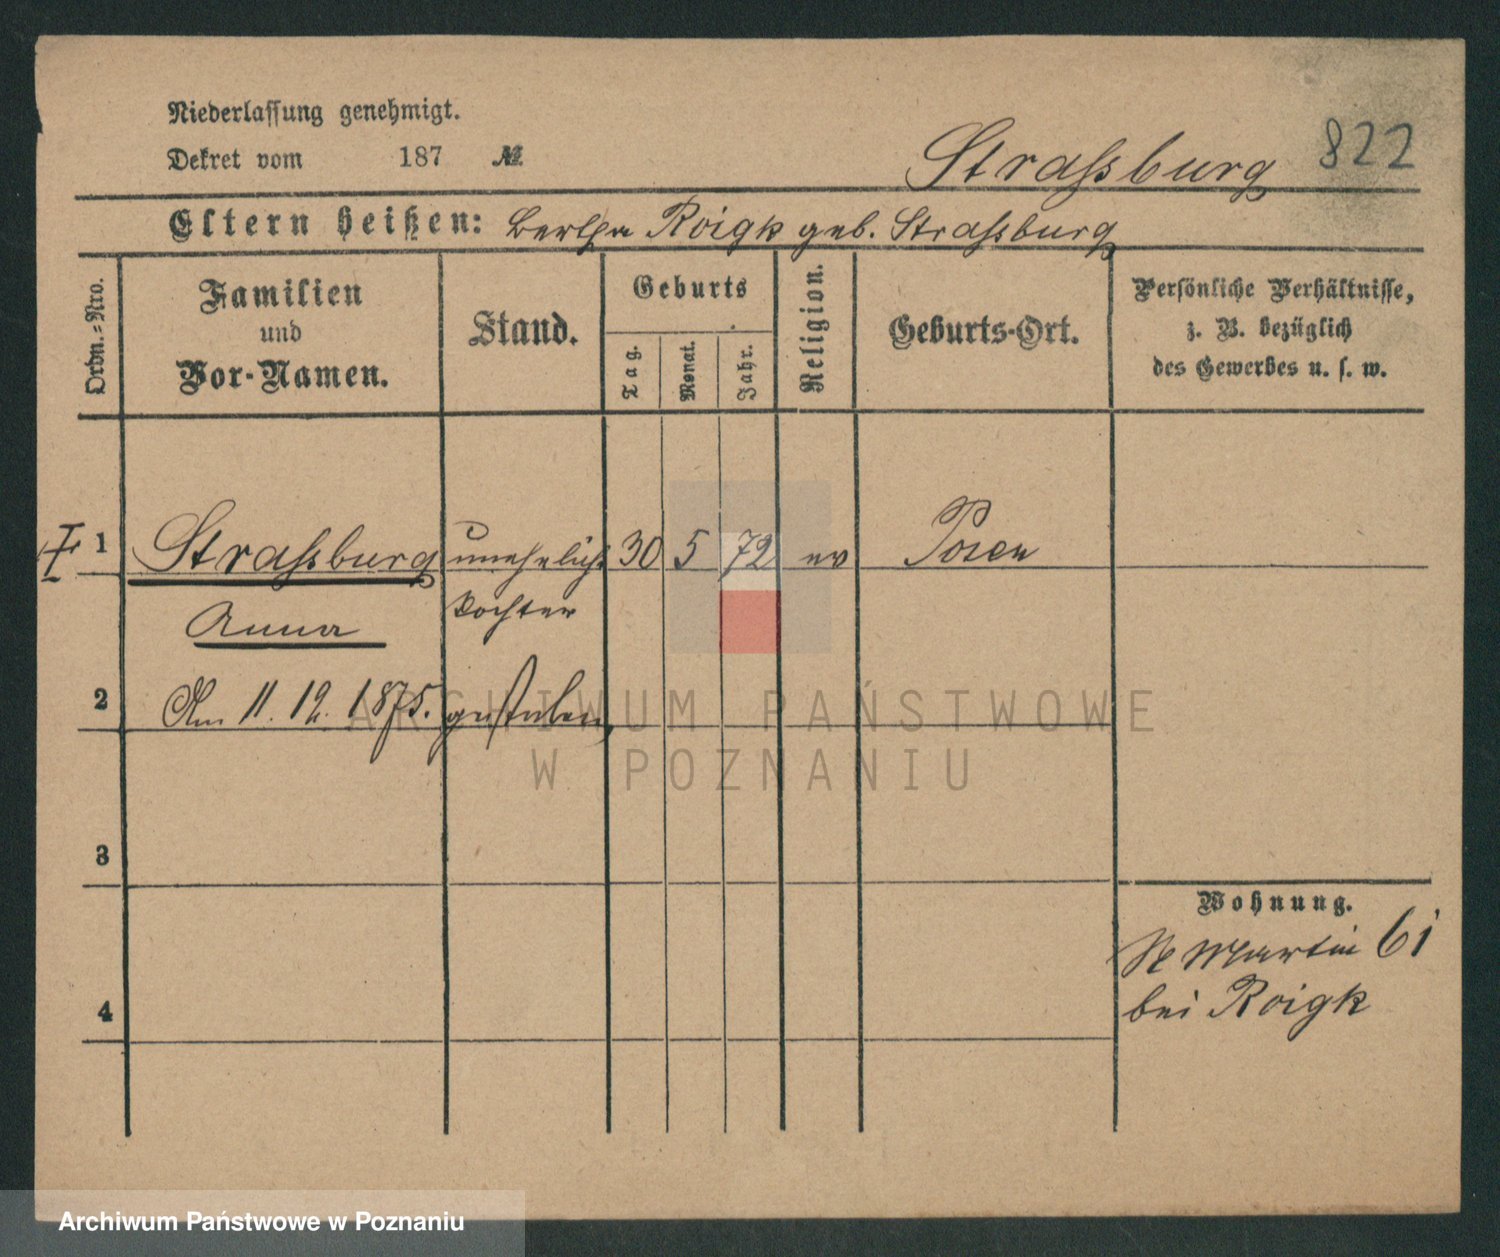 Niederlassung genehmigt.
Dekret vom 187 №
Straßburg 822
Eltern heißen: Bertha Roigk geb. Straßburg
Ordn.-Nro.
Familien
und
Vor-Namen.
Stand.
Geburts
Tag.
Monat.
Jahr.
Religion.
Geburts-Ort.
Persönliche Verhältnisse,
z. B. bezüglich
des Gewerbes u. s. w.
1 Straßburg unehelich 30 5 72 ev Posen
Anna Tochter
2 Am 11. 12. 1875. gestorben
ARCHIWUM PAŃSTWOWE
W POZNANIU
3
Wohnung.
St Martin 61
4 bei Roigk
Archiwum Państwowe w Poznaniu